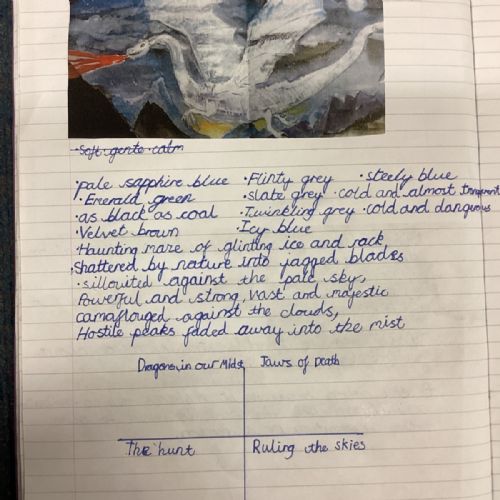 -Soft gente calm
·pale sapphire blue ·Flinty grey ·steely blue
·Emerald green ·slate grey ·cold and almost transparent
·as black as coal ·Twinkling grey ·cold and dangerous
·Velvet brown ·Icy blue
·Haunting maze of glinting ice and rock
shattered by nature into jagged blades
·sillouited against the pale sky,
Powerful and strong, vast and majestic
camaflouged against the clouds,
Hostile peaks faded away into the mist
Dragons in our Midst Jaws of Death
The hunt Ruling the skies